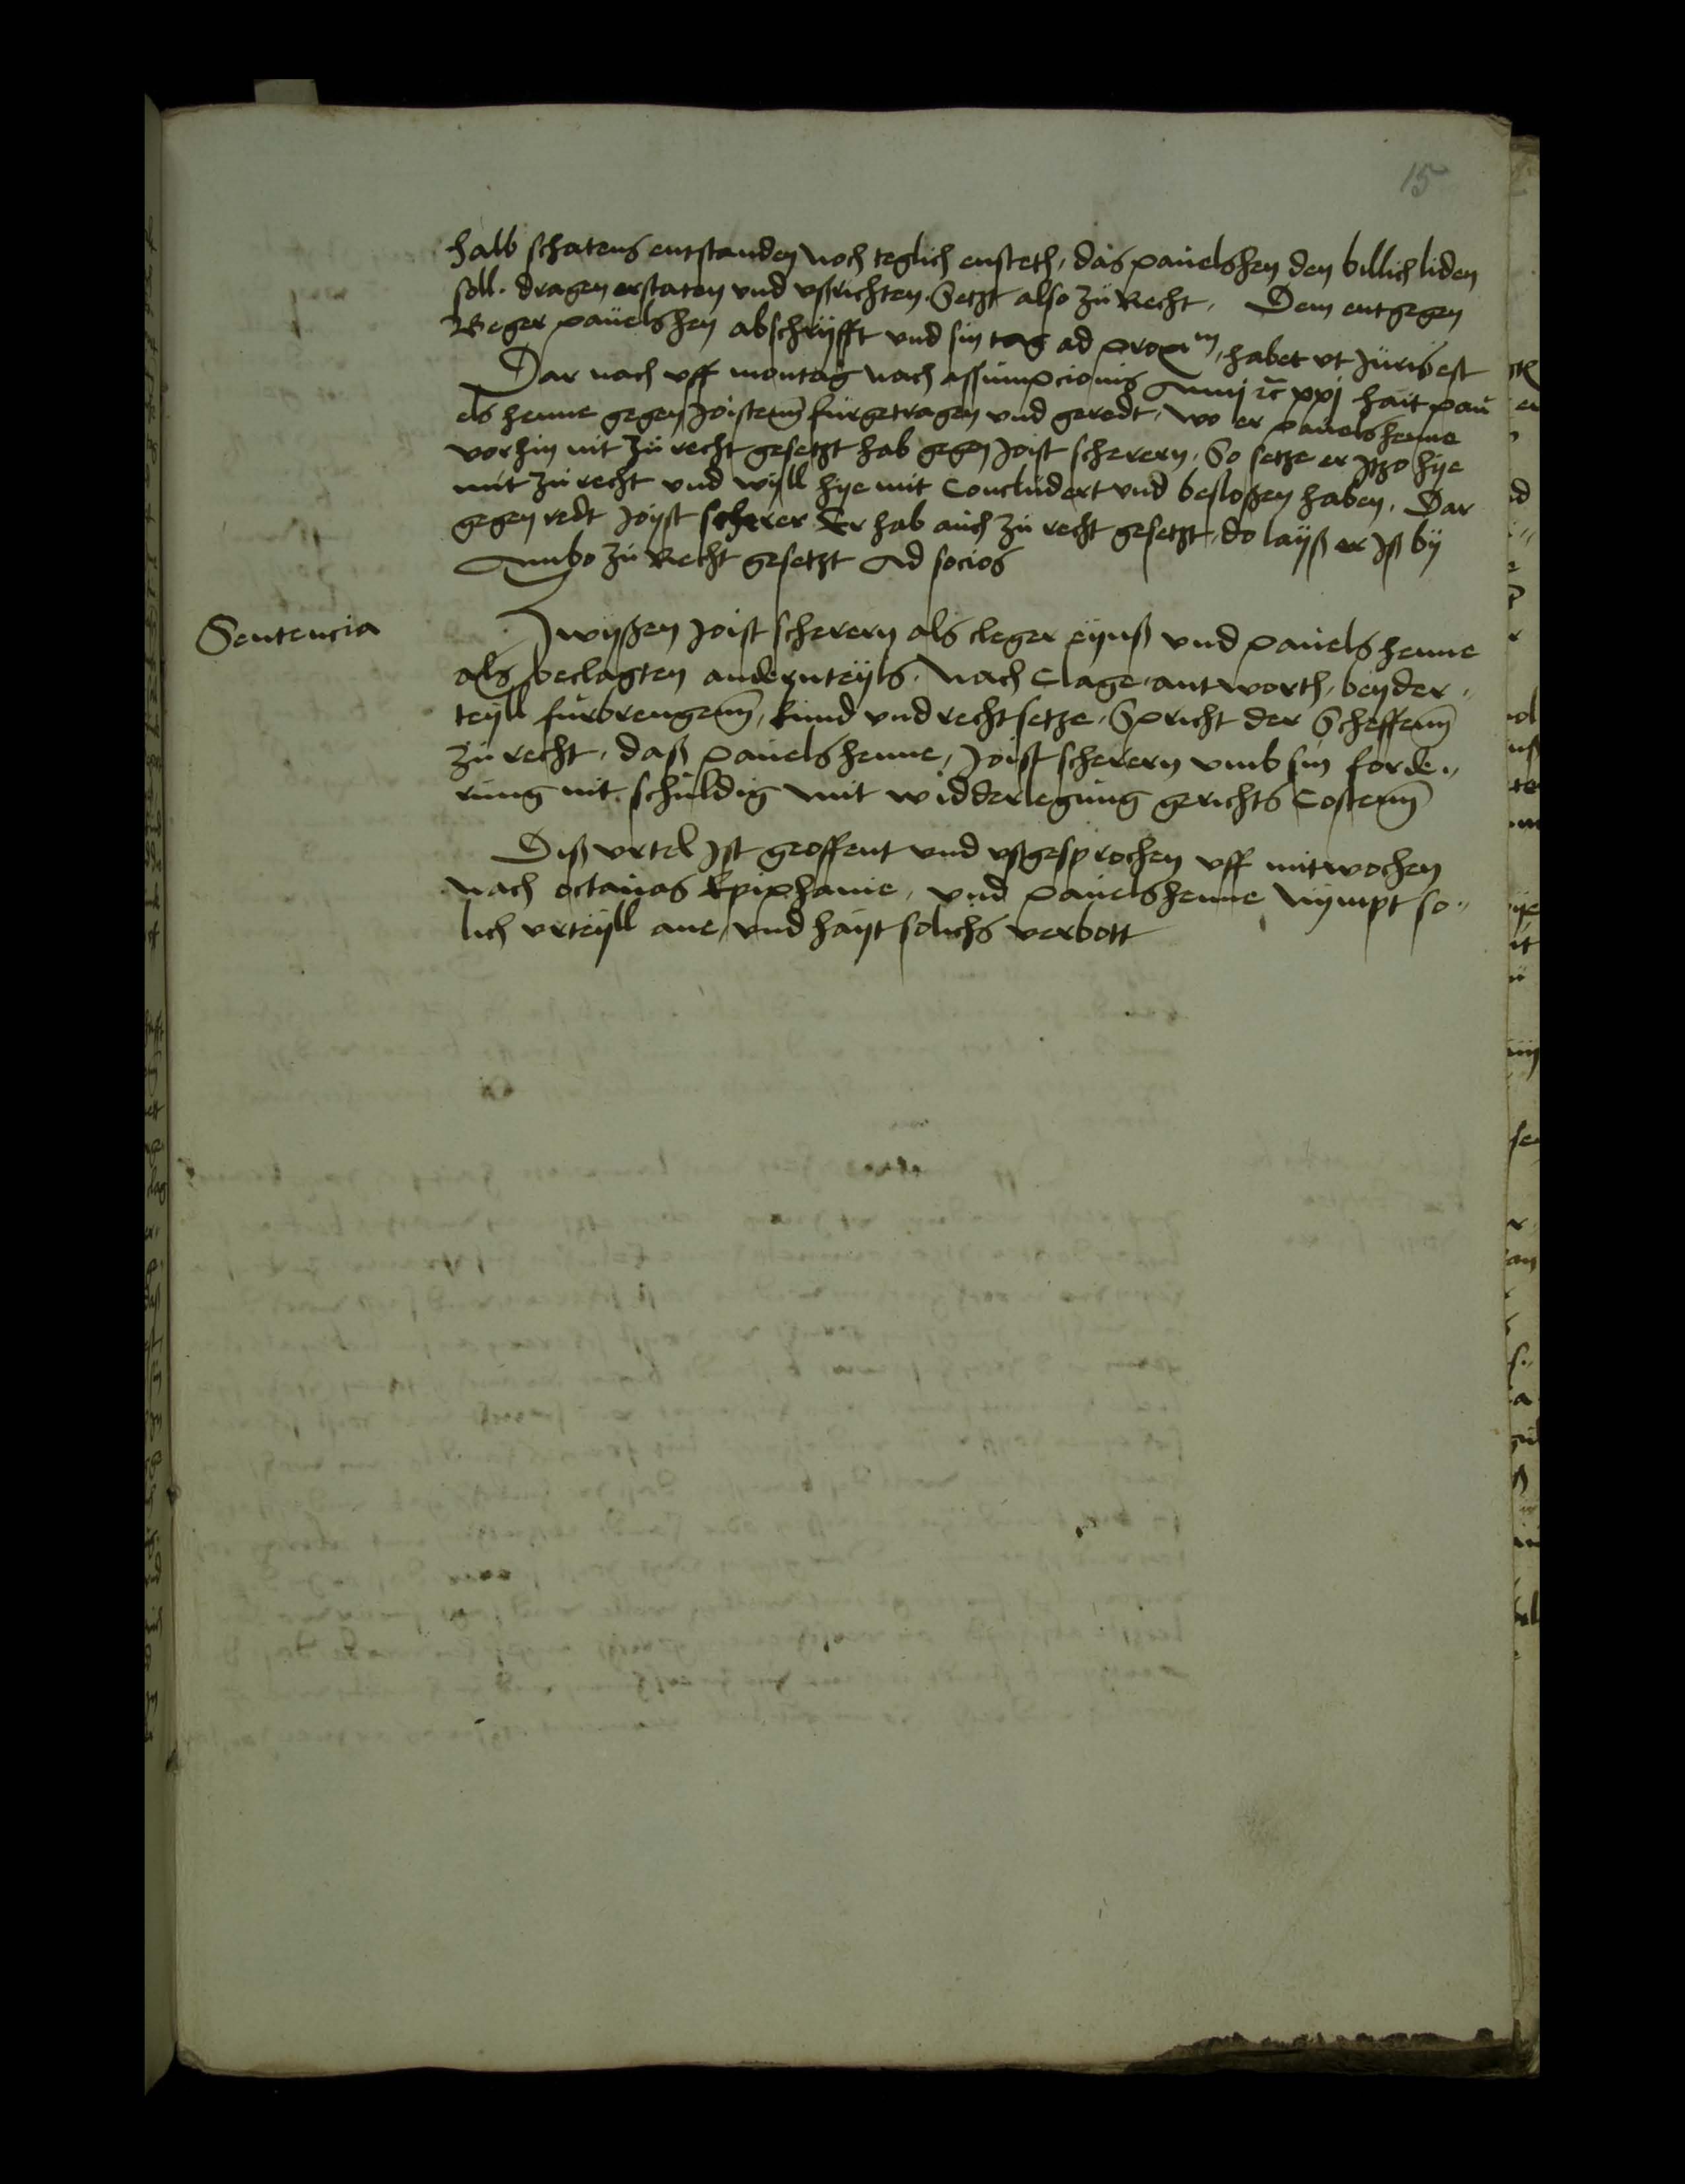 15
halb schatens entstanden noch teglich ensteth, das pauelshen den billich liden
soll. dragen erstaten vnd vßrichten. Setzt also zu Recht. Dem entgegen
Beger pauelshen abschryfft vnd sin tag ad proxm, habet vt Juris est
Dar nach vff montag nach assumpcionis Anni ꝛc xxj hait pau
els henne gegen Joistenn furgetragen vnd geredt, wo er pauelshenne
vorhin nit zu recht gesetzt hab gegen Joist scherern. So setze er Jtzo hye
mit zu recht vnd wyll hye mit Concludert vnd besloßen haben. Dar
gegen redt Joyst scherer Er hab auch zu recht gesetzt, do layß er Jß by
Ambo zu Recht gesetzt Ad socios
Sentencia
Zwyßen Joist scherern als cleger eynß vnd pauels henne
als beclagten andernteyls. Nach Clage, antworth, beyder
teyll furbrengenn, kund vnd rechtsetze, Spricht der Scheffenn
zu recht, daß pauels henne, Joist scherern vmb sin forde„
rung nit schuldig mit widderlegung gerichts Costenn
Diß vrtel Jst geoffent vnd vßgesprochen vff mitwochen
nach octauas Epiphanie, vnd pauelshenne Nympt so„
lich vrteyll ane, vnd hayt solichs verbott